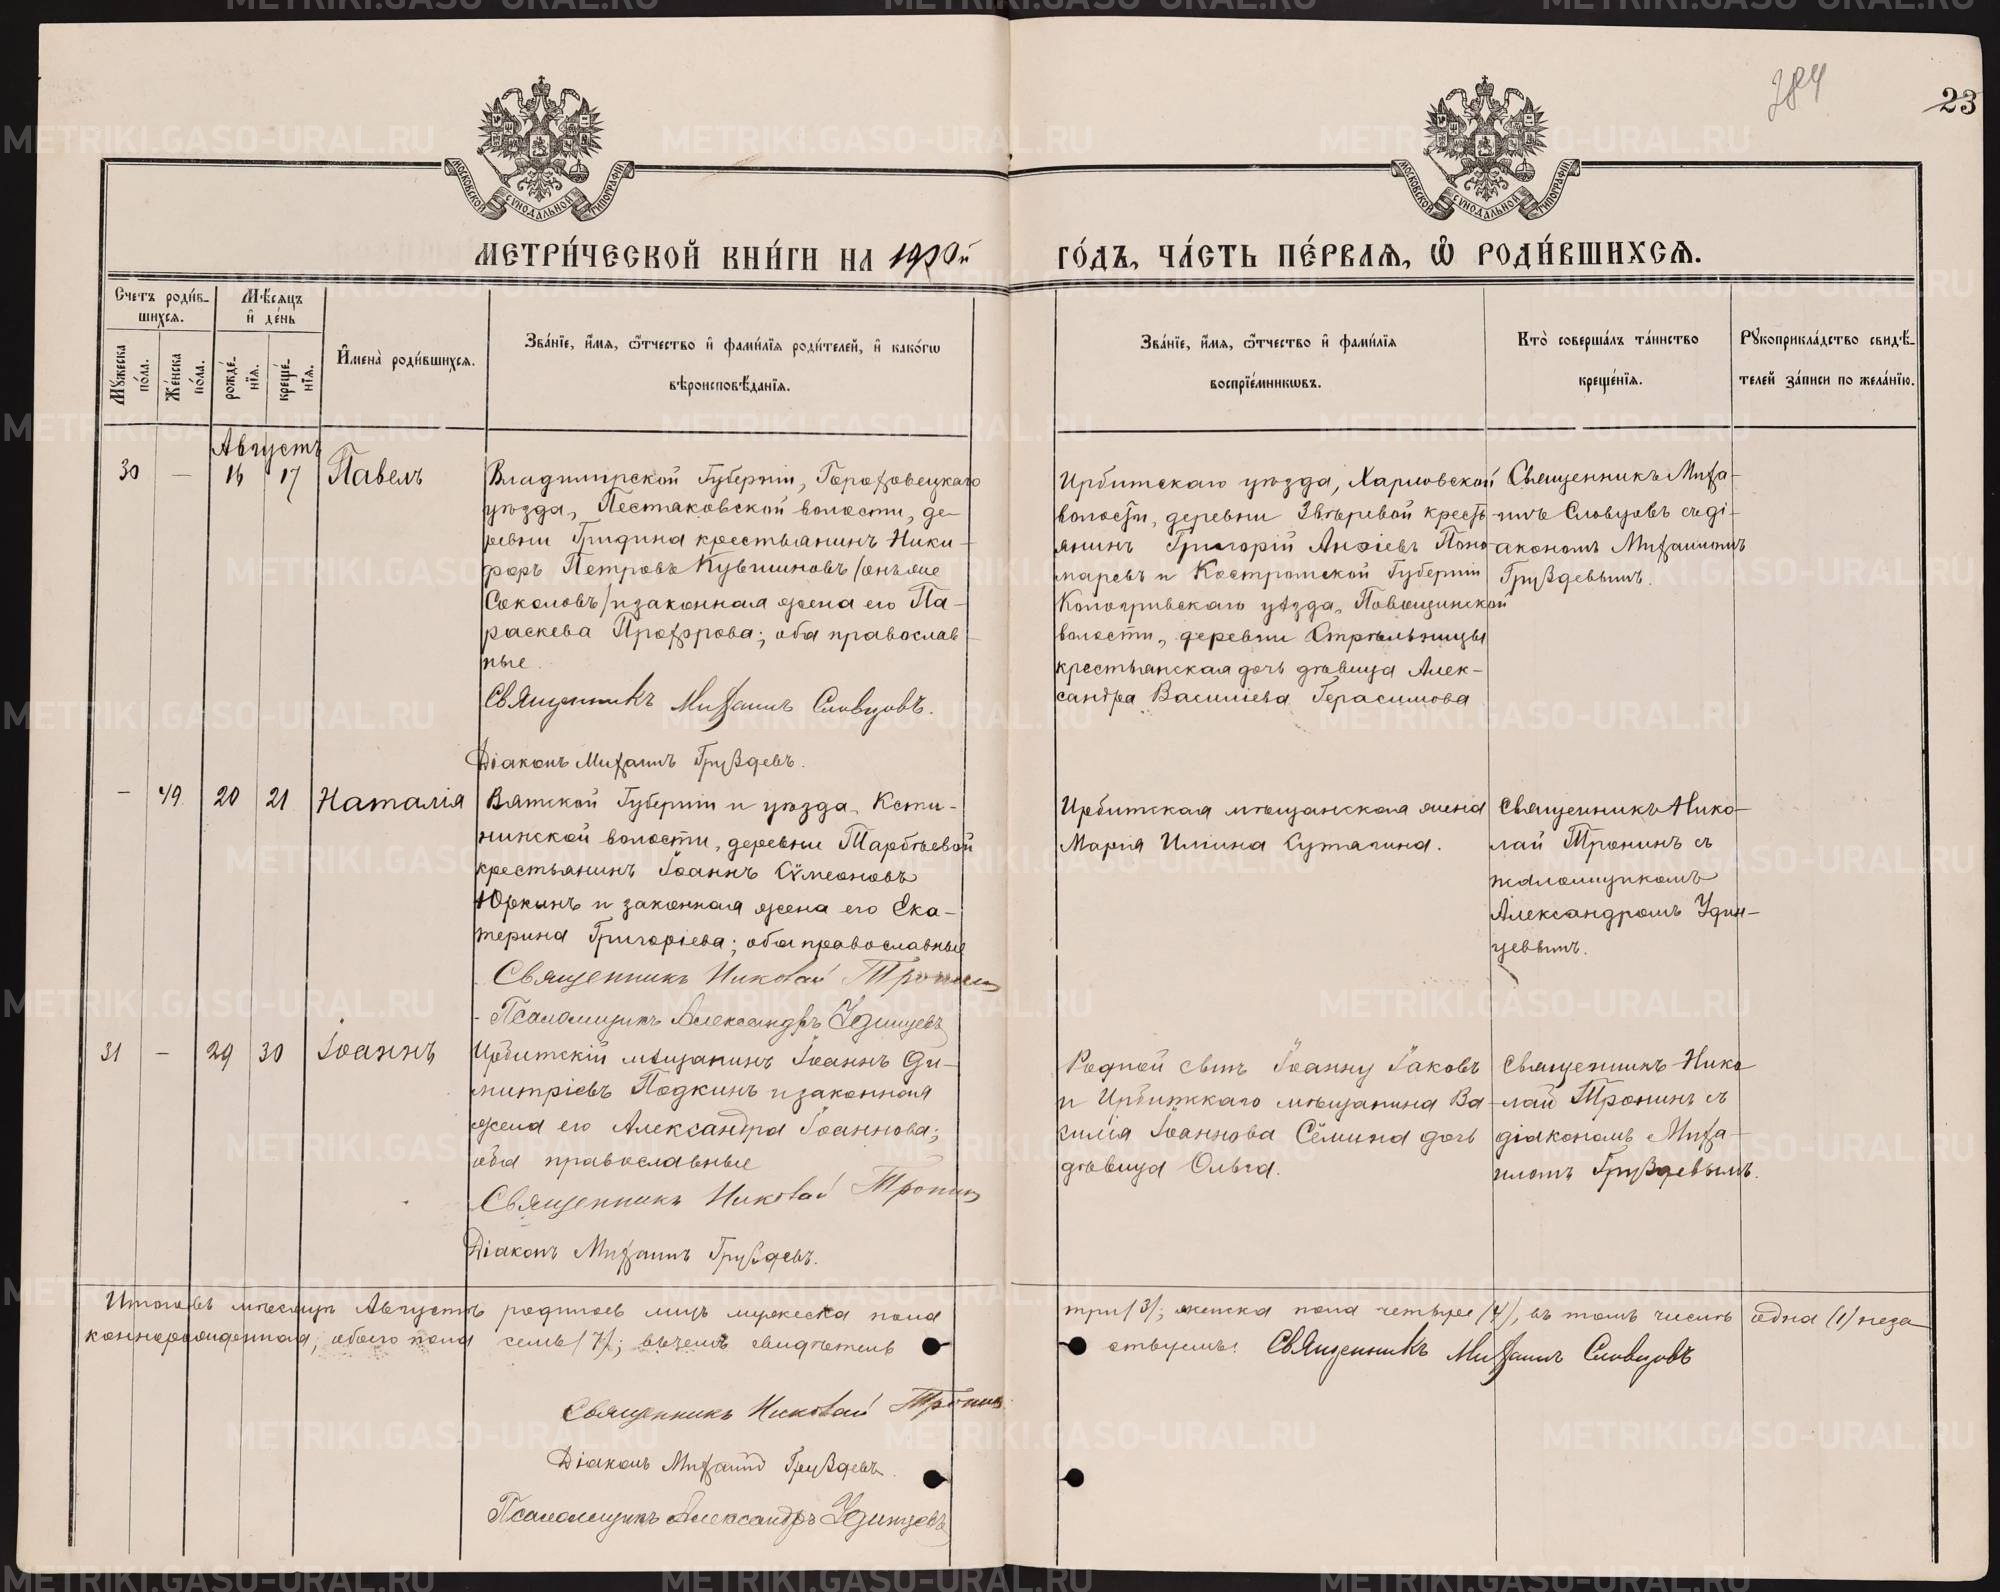 284
23
МОСКОВСКОЙ СѴНОДАЛЬНОЙ ТИПОГРАФІИ
МОСКОВСКОЙ СѴНОДАЛЬНОЙ ТИПОГРАФІИ
МЕТРИ́ЧЕСКОЙ КНИ́ГИ НА
ГО́ДЪ, ЧА́СТЬ ПЕ́РВАѦ, Ѽ РОДИ́ВШИХСѦ.
Счетъ роди́в-
шихсѧ.
Мѣ́сѧцъ
и҆ де́нь
Мꙋжеска
по́ла.
Же́нска
по́ла.
рожде́-
нїѧ.
креще́-
нїѧ.
И҆мена̀ роди́вшихсѧ.
Зва́нїе, и҆́мѧ, ѻ҆́тчество и҆ фами́лїѧ роди́телей, и҆ како́гѡ
вѣроисповѣ́данїѧ.
Зва́нїе, и҆́мѧ, ѻ҆́тчество и҆ фами́лїѧ
воспрїе́мникѡвъ.
Кто̀ соверша́лъ та́инство
креще́нїѧ.
Рꙋкоприкла́дство свидѣ́-
телей за́писи по жела́нїю.
Августъ
30 — 16 17 Павелъ
Владимірской Губерніи, Гороховецкаго
уѣзда, Пестяковской волости, де-
ревни Гридина крестьянинъ Ники-
форъ Петровъ Кувшиновъ /онъ же
Соколовъ/ и законная жена его Па-
раскева Прохорова; оба православ-
ные.
Священникъ Михаилъ Словцовъ.
Діаконъ Михаилъ Груздевъ.
Ирбитскаго уѣзда, Харловской
волости, деревни Звѣревой кресть-
янинъ Григорій Анфіевъ Поно-
маревъ и Костромской Губерніи
Кологривскаго уѣзда,
волости, деревни Стрѣльницы
крестьянская дочь дѣвица Алек-
сандра Василіева Герасимова
Священникъ Миха-
илъ Словцовъ съ ді-
акономъ Михаиломъ
Груздевымъ.
— 49 20 21 Наталія
Вятской Губерніи и уѣзда, Ксти-
нинской волости, деревни
крестьянинъ Іоаннъ Сѵмеоновъ
Юркинъ и законная жена его Ека-
терина Григоріева; оба православные
Священникъ Николай Тронинъ
Псаломщикъ Александръ Удинцевъ
Ирбитская мѣщанская жена
Марія Иліина Сутягина.
Священникъ Нико-
лай Тронинъ съ
псаломщикомъ
Александромъ Удин-
цевымъ.
31 — 29 30 Іоаннъ
Ирбитскій мѣщанинъ Іоаннъ Ди-
митріевъ Подкинъ и законная
жена его Александра Іоаннова;
оба православные
Священникъ Николай Тронинъ
Діаконъ Михаилъ Груздевъ.
Родной сынъ Іоанну Іаковъ
и Ирбитскаго мѣщанина Ва-
силія Іоаннова Сёмина дочь
дѣвица Ольга.
Священникъ Нико-
лай Тронинъ съ
діакономъ Миха-
иломъ Груздевымъ.
Итого въ мѣсяцѣ Августѣ родилось лицъ мужеска пола три /3/; женска пола четыре /4/, въ томъ числѣ одна /1/ неза-
коннорожденная; обоего пола семь /7/; въ чемъ свидѣтель ствуемъ: Священникъ Михаилъ Словцовъ
Священникъ Николай Тронинъ
Діаконъ Михаилъ Груздевъ.
Псаломщикъ Александръ Удинцевъ
METRIKI.GASO-URAL.RU